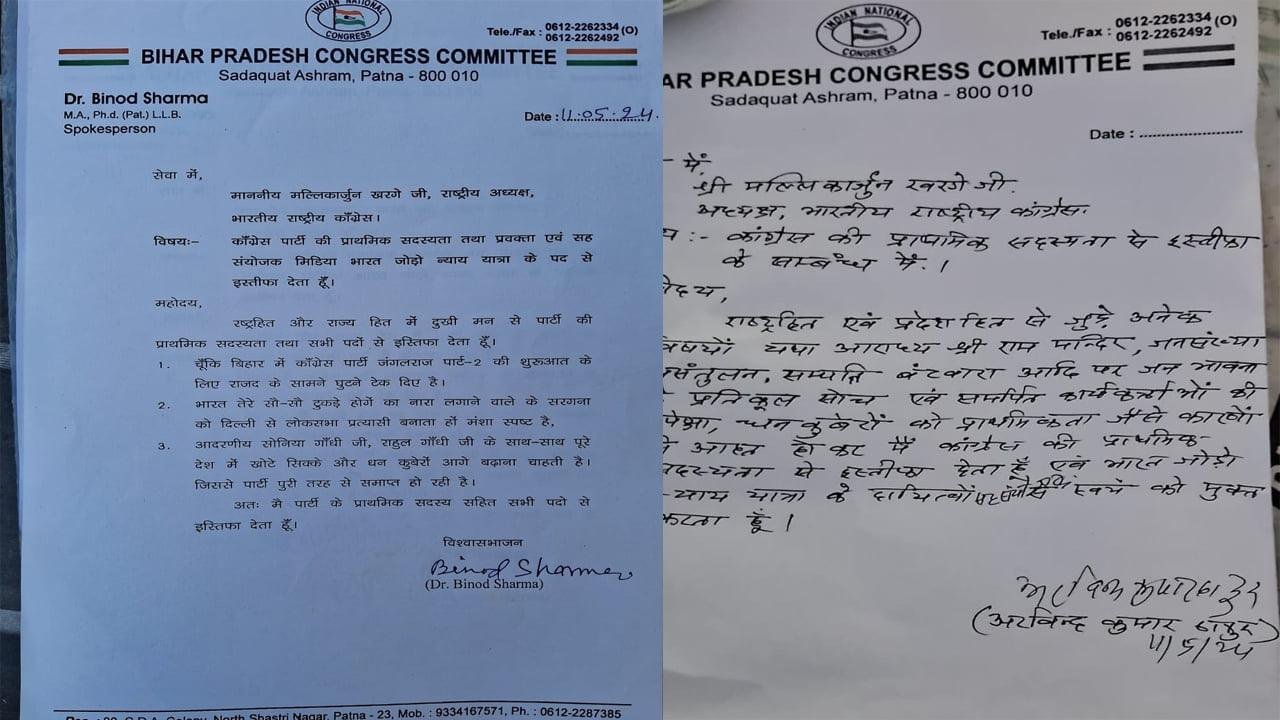 INDIAN NATIONAL
CONGRESS
Tele./Fax : 0612-2262334 (O)
0612-2262492
BIHAR PRADESH CONGRESS COMMITTEE
Sadaquat Ashram, Patna - 800 010
Dr. Binod Sharma
M.A., Ph.d. (Pat.) L.L.B.
Spokesperson
Date : 11.05.24.
सेवा में,
माननीय मल्लिकार्जुन खरगे जी, राष्ट्रीय अध्यक्ष,
भारतीय राष्ट्रीय काँग्रेस।
विषयः- काँग्रेस पार्टी की प्राथमिक सदस्यता तथा प्रवक्ता एवं सह
संयोजक मिडिया भारत जोड़ो न्याय यात्रा के पद से
इस्तीफा देता हूँ।
महोदय,
राष्ट्रहित और राज्य हित में दुखी मन से पार्टी की
प्राथमिक सदस्यता तथा सभी पदों से इस्तिफा देता हूँ।
1. चूँकि बिहार में काँग्रेस पार्टी जंगलराज पार्ट-2 की शुरूआत के
लिए राजद के सामने घुटने टेक दिए है।
2. भारत तेरे सौ-सौ टुकड़े होगें का नारा लगाने वाले के सरगना
को दिल्ली से लोकसभा प्रत्यासी बनाता हों मंशा स्पष्ट है,
3. आदरणीय सोनिया गाँधी जी, राहुल गाँधी जी के साथ-साथ पूरे
देश में खोटे सिक्के और धन कुबेरों आगे बढ़ाना चाहती है।
जिससे पार्टी पुरी तरह से समाप्त हो रही है।
अतः मै पार्टी के प्राथमिक सदस्य सहित सभी पदो से
इस्तिफा देता हूँ।
विश्वासभाजन
Binod Sharma
(Dr. Binod Sharma)
Colony, North Shastri Nagar, Patna - 23, Mob. : 9334167571, Ph. : 0612-2287385
INDIAN NATIONAL
CONGRESS
Tele./Fax : 0612-2262334 (O)
0612-2262492
AR PRADESH CONGRESS COMMITTEE
Sadaquat Ashram, Patna - 800 010
Date :
में,
श्री मल्लिकार्जुन खरगे जी.
अध्यक्ष, भारतीय राष्ट्रीय कांग्रेस.
य :- कांग्रेस की प्राथमिक सदस्यता से इस्तीफा
के सम्बंध में.।
दय,
राष्ट्रहित एवं प्रदेश हित से जुड़े अनेक
विषयों यथा आराध्य श्री राम मन्दिर, जनसंख्या
संतुलन, सम्पत्ति बंटवारा आदि पर जन भावना
प्रतिकूल सोच एवं समर्पित कार्यकर्त्ताओं की
पेक्षा, धन कुबेरों को प्राथमिकता जैसे कारणों
आहत हो कर मैं कांग्रेस की प्राथमिक
सदस्यता से इस्तीफा देता हूँ एवं भारत जोड़ो
न्याय यात्रा के दायित्वों से स्वयं को मुक्त
करता हूँ।
अरविन्द कुमार ठाकुर
(अरविन्द कुमार ठाकुर)
11/5/24